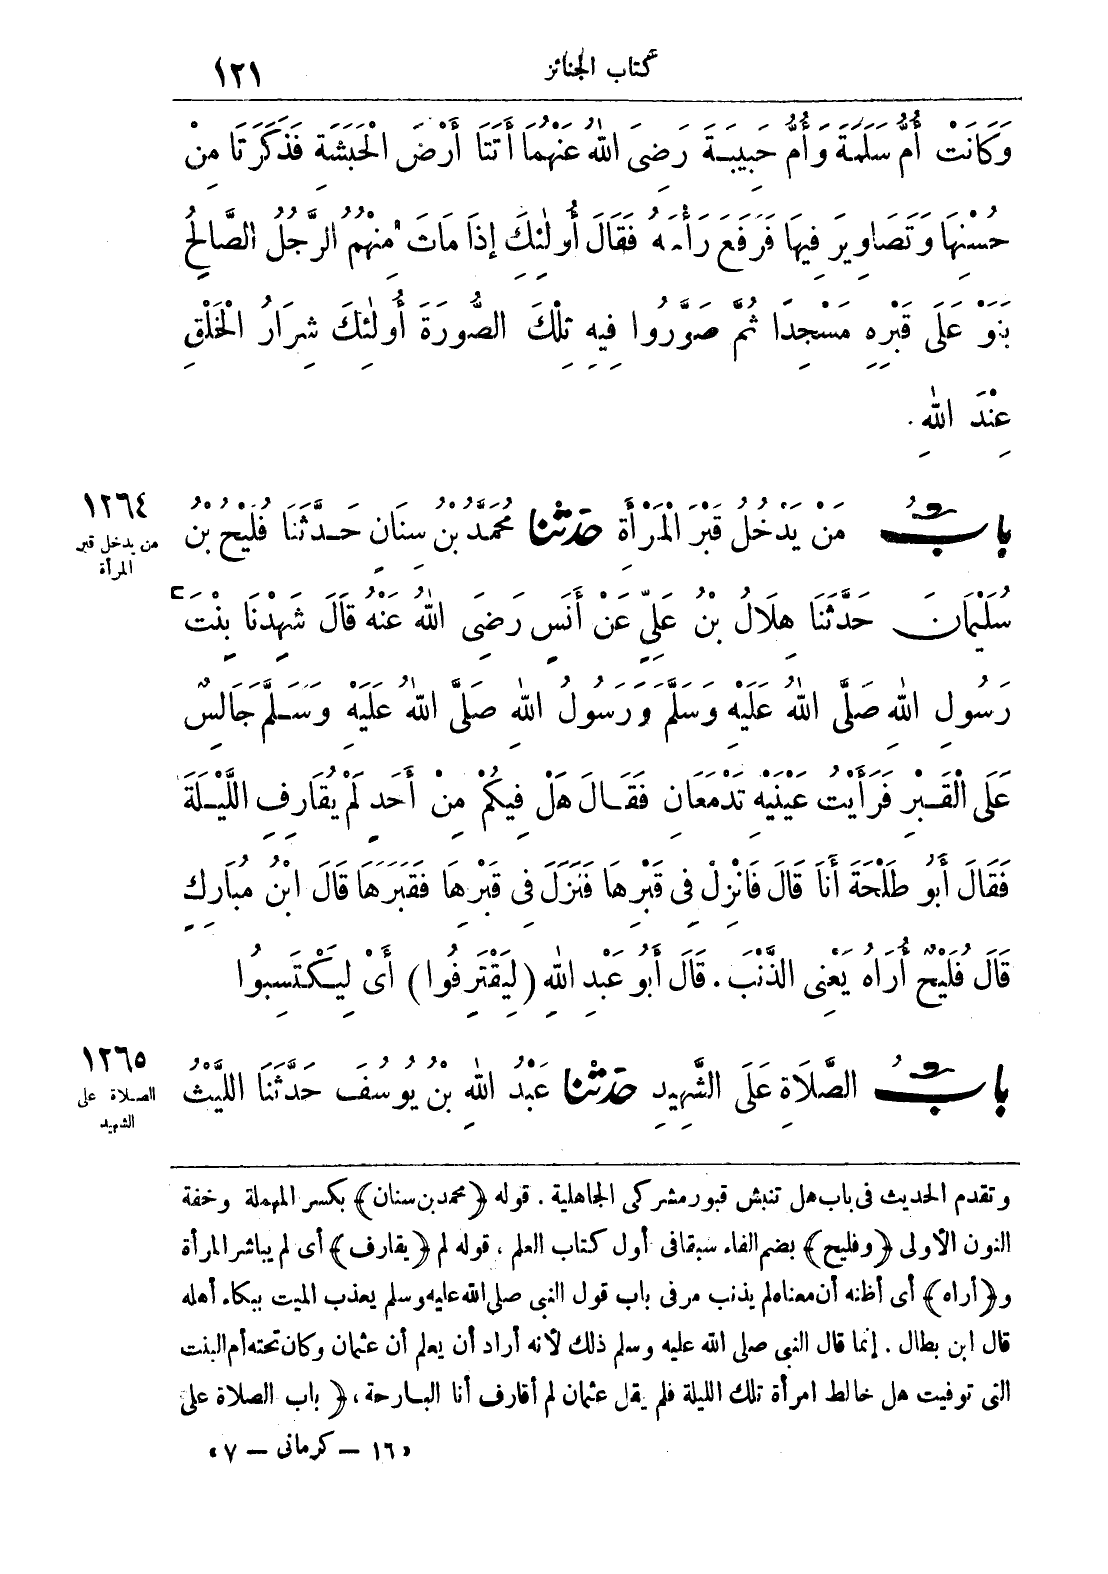 كتاب الجنائز ١٢١
وَكَانَتْ أُمُّ سَلَمَةَ وَأُمُّ حَبِيبَةَ رَضِىَ اللهُ عَنْهُمَا أَتَتَا أَرْضَ الْحَبَشَةِ فَذَكَرَتَا مِنْ
حُسْنِهَا وَتَصَاوِيرَ فِيهَا فَرَفَعَ رَأْسَهُ فَقَالَ أُولٰئِكَ إِذَا مَاتَ مِنْهُمُ الرَّجُلُ الصَّالِحُ
بَنَوْا عَلَى قَبْرِهِ مَسْجِدًا ثُمَّ صَوَّرُوا فِيهِ تِلْكَ الصُّورَةَ أُولٰئِكَ شِرَارُ الْخَلْقِ
عِنْدَ اللهِ .
١٢٦٤
من يدخل قبر
المرأة
بابُ مَنْ يَدْخُلُ قَبْرَ الْمَرْأَةِ حدثنا مُحَمَّدُ بْنُ سِنَانٍ حَدَّثَنَا فُلَيْحُ بْنُ
سُلَيْمَانَ حَدَّثَنَا هِلَالُ بْنُ عَلِيٍّ عَنْ أَنَسٍ رَضِىَ اللهُ عَنْهُ قَالَ شَهِدْنَا بِنْتَ
رَسُولِ اللهِ صَلَّى اللهُ عَلَيْهِ وَسَلَّمَ وَرَسُولُ اللهِ صَلَّى اللهُ عَلَيْهِ وَسَلَّمَ جَالِسٌ
عَلَى الْقَبْرِ فَرَأَيْتُ عَيْنَيْهِ تَدْمَعَانِ فَقَالَ هَلْ فِيكُمْ مِنْ أَحَدٍ لَمْ يُقَارِفِ اللَّيْلَةَ
فَقَالَ أَبُو طَلْحَةَ أَنَا قَالَ فَانْزِلْ فِى قَبْرِهَا فَنَزَلَ فِى قَبْرِهَا فَقَبَرَهَا قَالَ ابْنُ مُبَارَكٍ
قَالَ فُلَيْحٌ أُرَاهُ يَعْنِى الذَّنْبَ . قَالَ أَبُو عَبْدِ اللهِ (لِيَقْتَرِفُوا) أَىْ لِيَكْتَسِبُوا
١٢٦٥
الصلاة على
الشهيد
بابُ الصَّلَاةِ عَلَى الشَّهِيدِ حدثنا عَبْدُ اللهِ بْنُ يُوسُفَ حَدَّثَنَا اللَّيْثُ
وتقدم الحديث فى باب هل تنبش قبور مشركى الجاهلية . قوله ﴿محمد بن سنان﴾ بكسر المهملة وخفة
النون الأولى ﴿وفليح﴾ بضم الفاء سبقا فى أول كتاب العلم ، قوله لم ﴿يقارف﴾ أى لم يباشر المرأة
و﴿أراه﴾ أى أظنه أن معناه لم يذنب مر فى باب قول النبى صلى الله عليه وسلم يعذب الميت ببكاء أهله
قال ابن بطال . إنما قال النبى صلى الله عليه وسلم ذلك لأنه أراد أن يعلم أن عثمان وكان تحته أم البنت
التى توفيت هل خالط امرأة تلك الليلة فلم يقل عثمان لم أقارف أنا البارحة ، ﴿ باب الصلاة على
« ١٦ – كرمانى – ٧ »